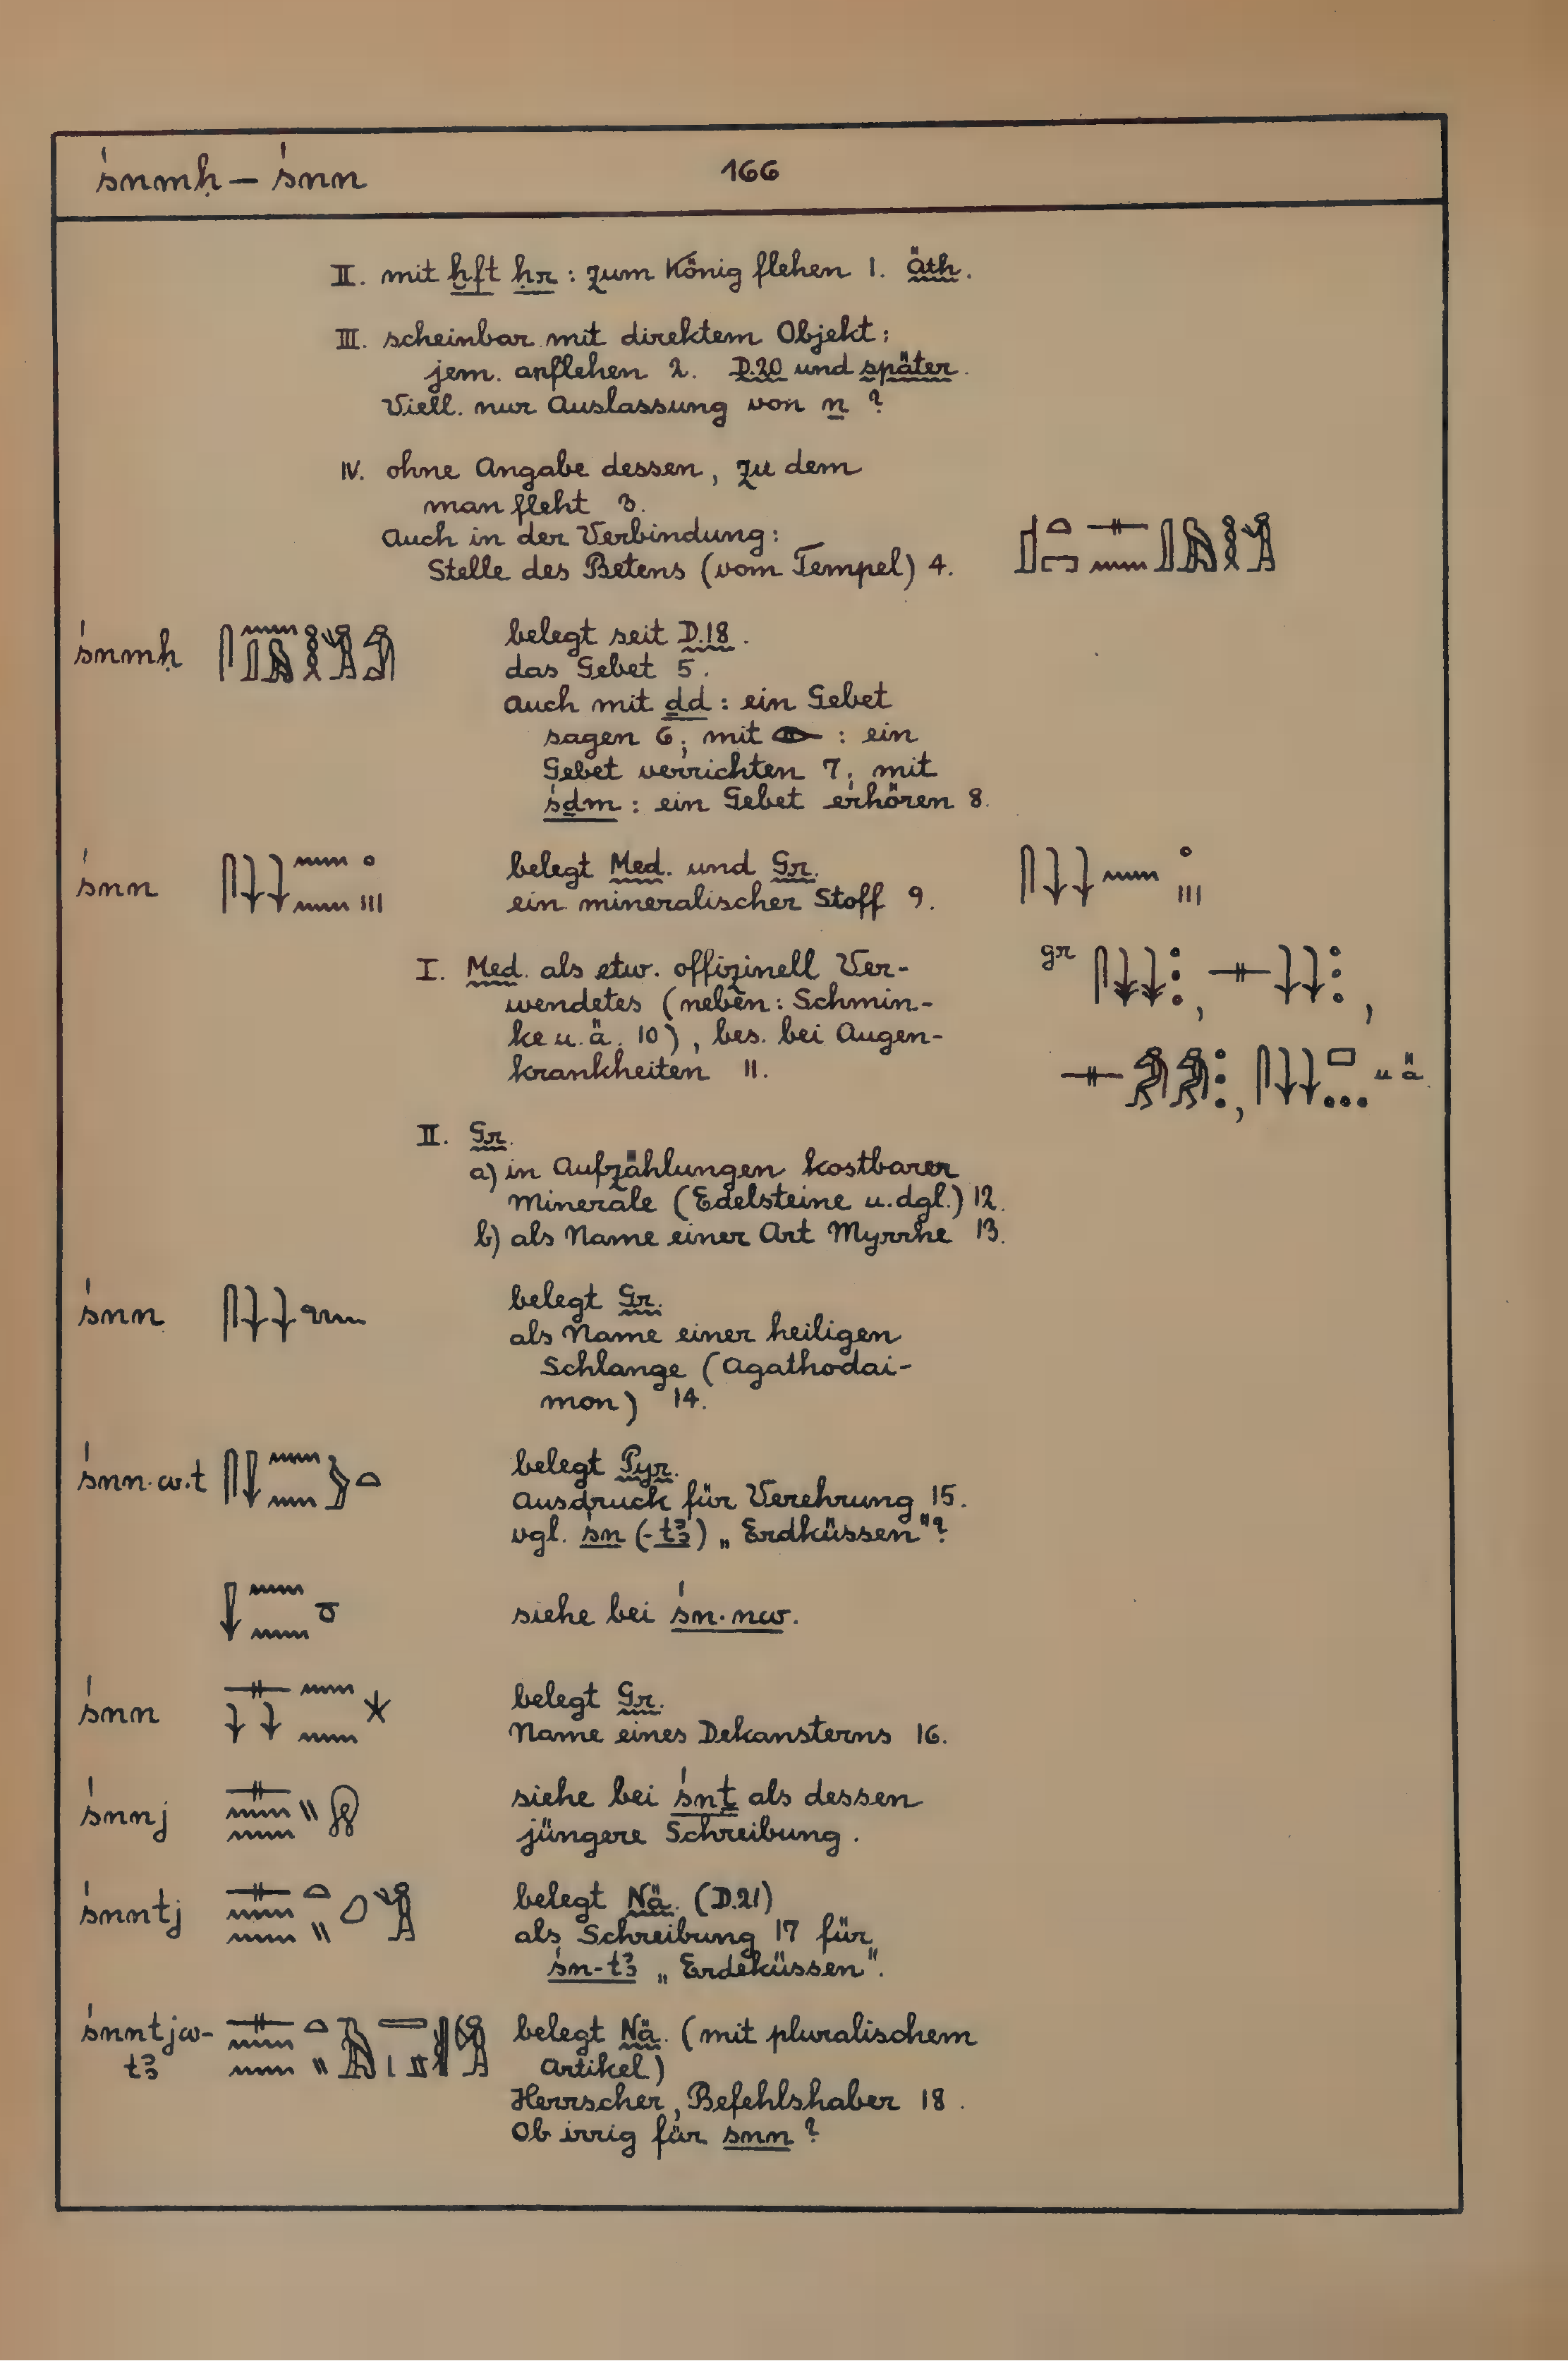 śnmḥ — śnn 166
II. mit ḫft ḥr : zum König flehen 1. äth.
III. scheinbar mit direktem Objekt:
jem. anflehen 2. D.20 und später.
Viell. nur Auslassung von n ?
IV. ohne Angabe dessen, zu dem
man fleht 3.
Auch in der Verbindung:
Stelle des Betens (vom Tempel) 4.
śnmḥ belegt seit D.18.
das Gebet 5.
auch mit ḏd : ein Gebet
sagen 6; mit 𓁹 : ein
Gebet verrichten 7; mit
śḏm : ein Gebet erhören 8.
śnn belegt Med. und Gr.
ein mineralischer Stoff 9.
I. Med. als etw. offizinell Ver-
wendetes (neben: Schmin-
ke u. ä. 10), bes. bei Augen-
krankheiten 11.
gr
u ä.
II. Gr.
a) in Aufzählungen kostbarer
Minerale (Edelsteine u. dgl.) 12.
b) als Name einer Art Myrrhe 13.
śnn belegt Gr.
als Name einer heiligen
Schlange (Agathodai-
mon) 14.
śnn.w.t belegt Pyr.
Ausdruck für Verehrung 15.
vgl. śn (-tꜣ) „Erdküssen"?
siehe bei śn.nw.
śnn belegt Gr.
Name eines Dekansterns 16.
śnnj siehe bei śnṯ als dessen
jüngere Schreibung.
śnntj belegt Nä. (D.21)
als Schreibung 17 für
śn-tꜣ „Erdeküssen".
śnntjw- belegt Nä. (mit pluralischem
tꜣ Artikel)
Herrscher, Befehlshaber 18.
Ob irrig für snn ?